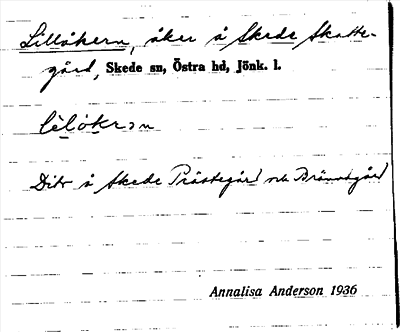 Lillåkern, åker å Skede Skatte-
gård, Skede sn, Östra hd, Jönk. l.
Dito å Skede Prästegård och
Annalisa Anderson 1936